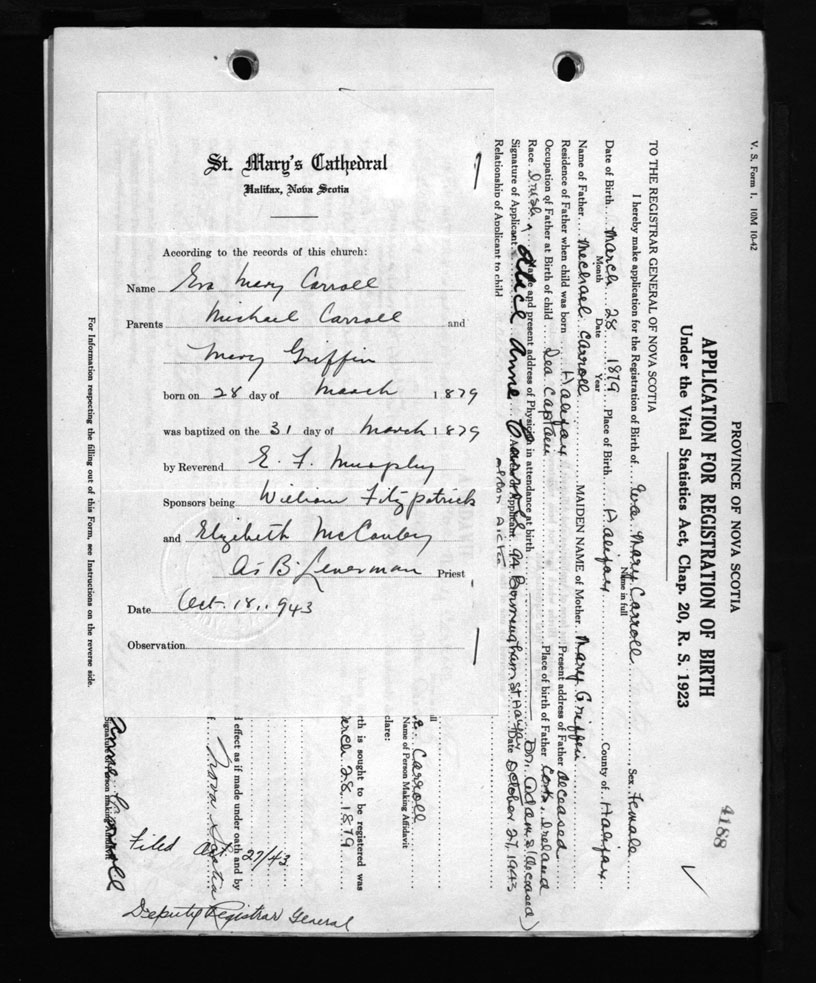 St. Mary's Cathedral
Halifax, Nova Scotia
According to the records of this church:
Name Eva Mary Carroll
Parents Michael Carroll and
Mary Griffin
born on 28 day of March 1879
was baptized on the 31 day of March 1879
by Reverend E. F. Murphy
Sponsors being William Fitzpatrick
and Elizibeth McCauley
Priest
Date Oct. 18, 1943
Observation
V. S. Form 1. 10M 10-42
PROVINCE OF NOVA SCOTIA
4188
APPLICATION FOR REGISTRATION OF BIRTH
Under the Vital Statistics Act, Chap. 20, R. S. 1923
TO THE REGISTRAR GENERAL OF NOVA SCOTIA
I hereby make application for the Registration of Birth of Eva Mary Carroll Sex Female
Name in full
Date of Birth March 28 1879 Place of Birth Halifax County of Halifax
Month Date Year
Name of Father Michael Carroll MAIDEN NAME of Mother Mary Griffin
Residence of Father when child was born Halifax Present address of Father deceased
Occupation of Father at Birth of child Sea Captain Place of birth of Father Cork, Ireland
Race Irish Name and present address of Physician in attendance at birth Dr. (deceased)
Signature of Applicant Anne Carroll Address of Applicant 94 St. Halifax Date October 27, 1943
Relationship of Applicant to child
clare:
Carroll
Name of Person Making Affidavit
rth is sought to be registered was
March 28 1879
l effect as if made under oath and by
Nova Scotia
Anne Carroll
Signature of Person making Affidavit
Filed Oct 27/43
Deputy Registrar General
For Information respecting the filling out of this Form, see Instructions on the reverse side.